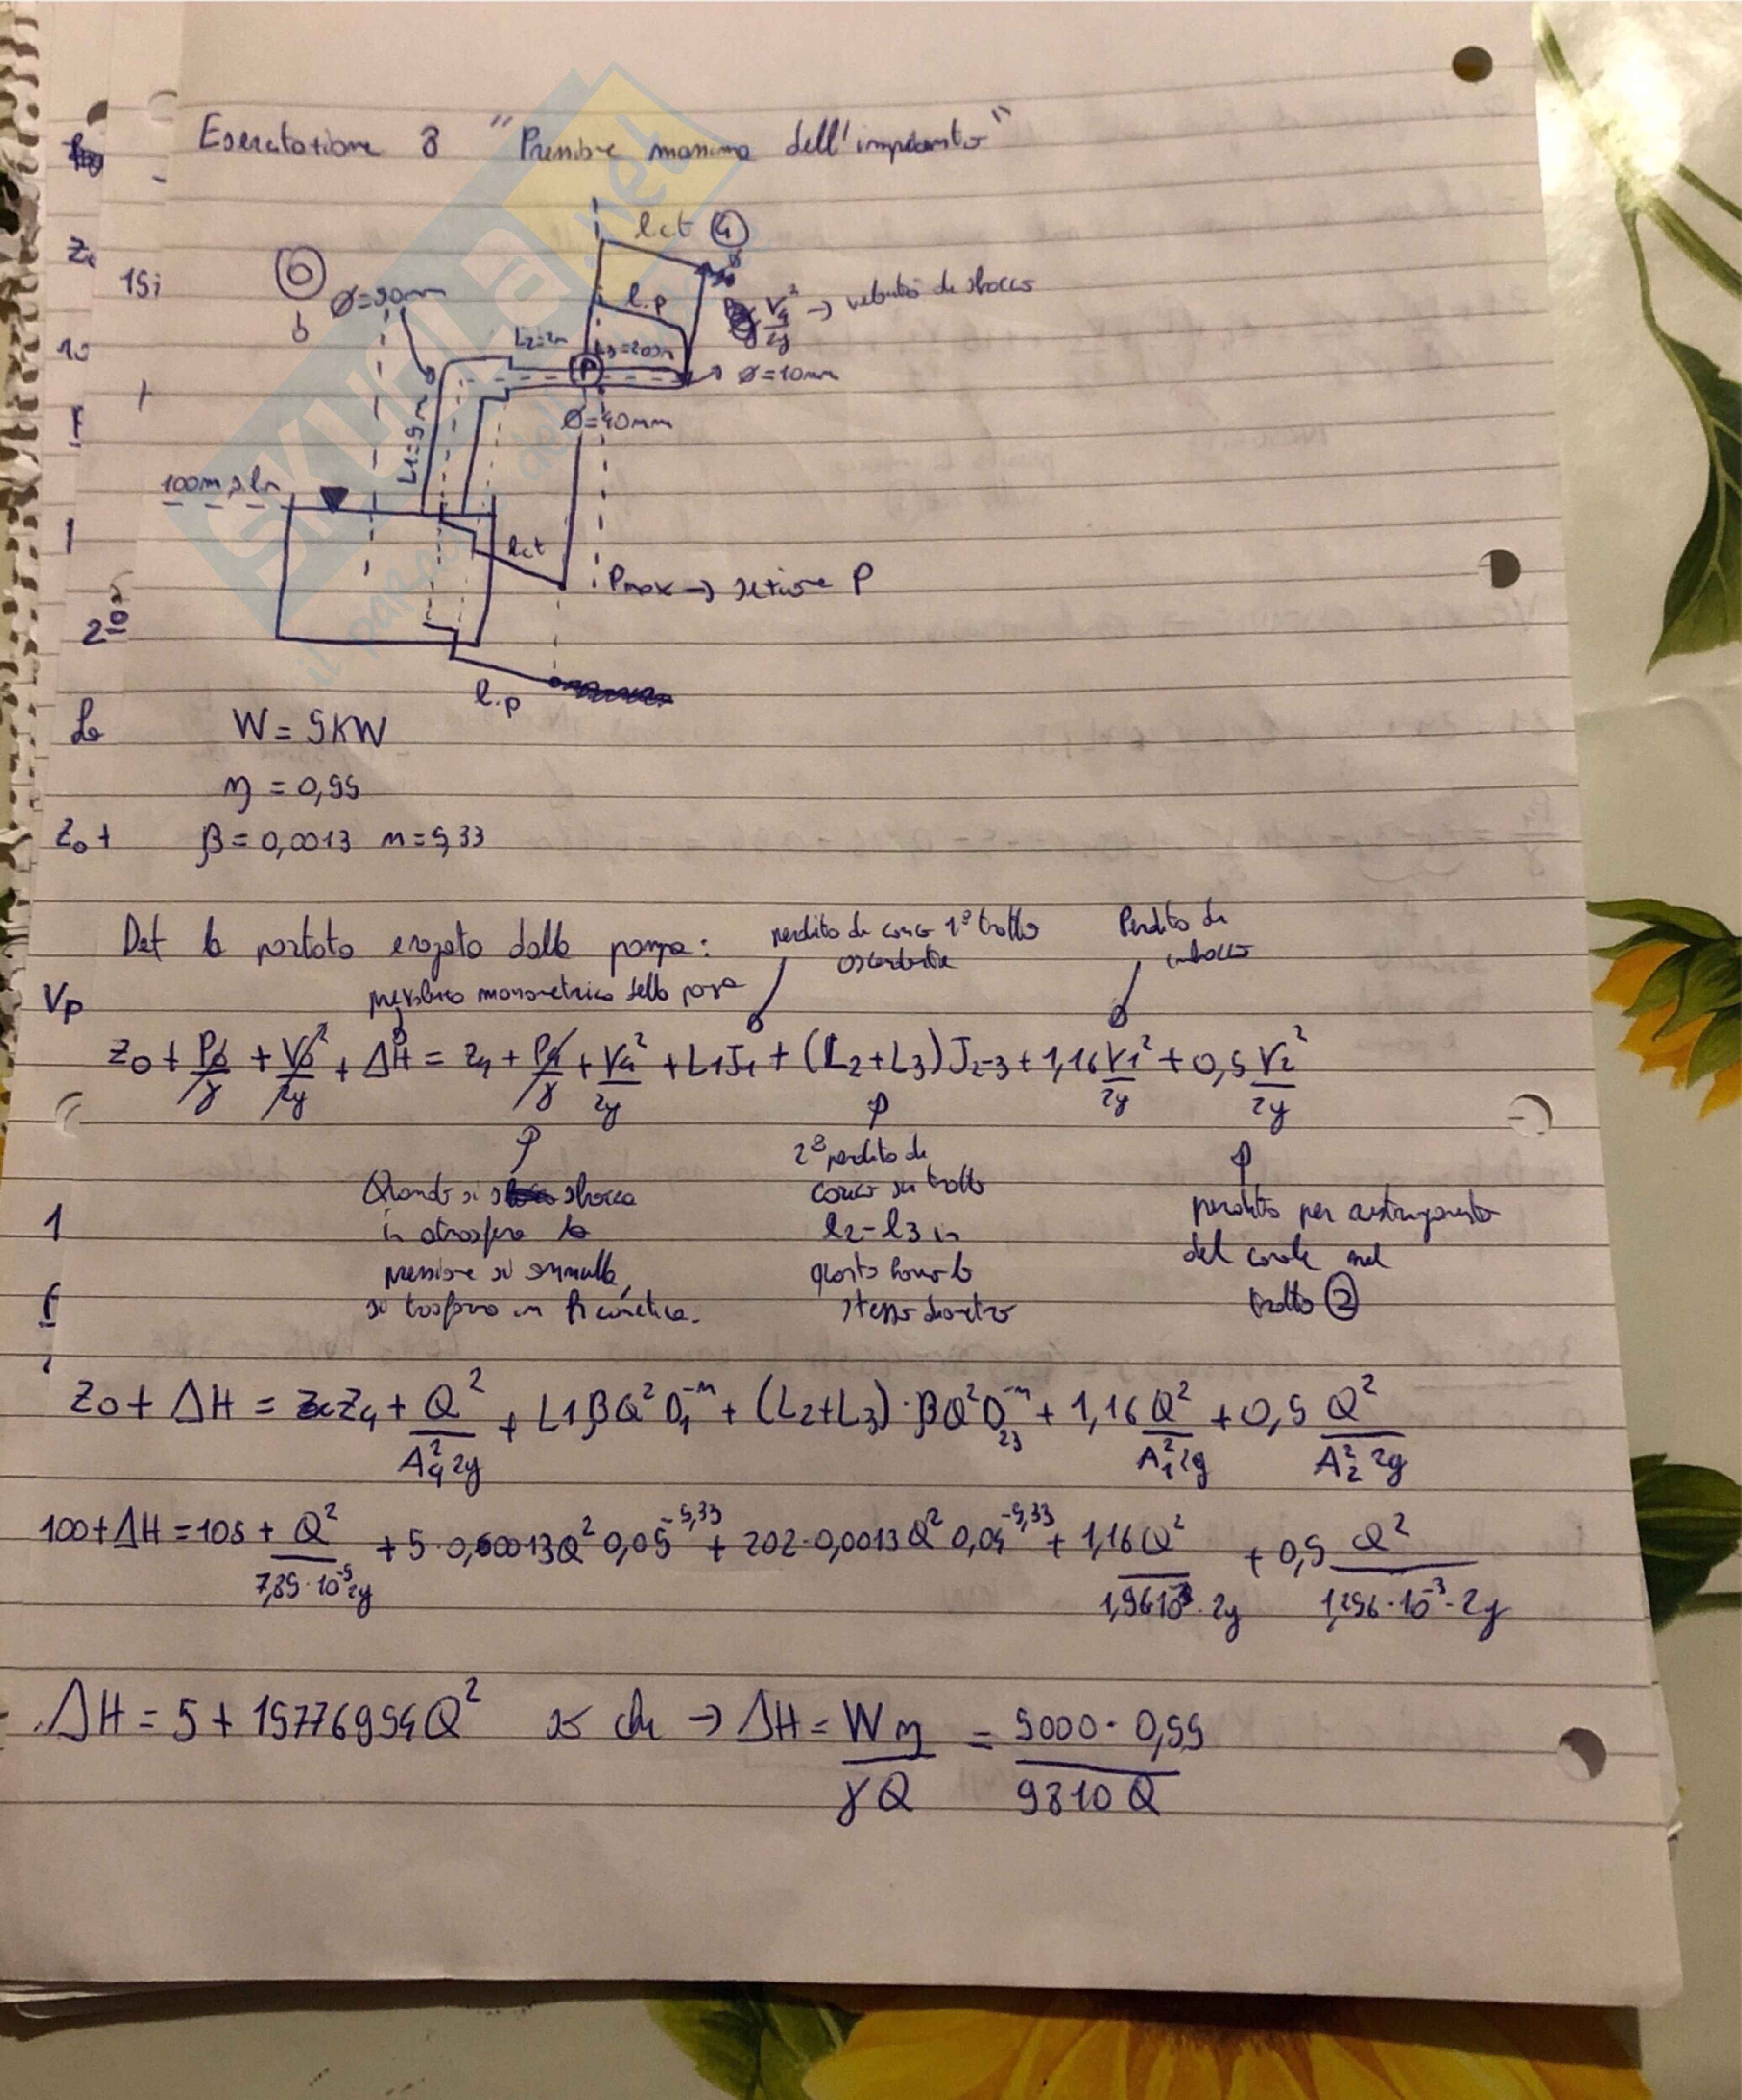 Esercitazione 8 "Pressione massima dell'impianto"
l.c.t 4
0
Ø=50mm
l.p
V4²/2g → velocità di sbocco
L2=2m
L3=200m
P
Ø=10mm
Ø=40mm
L1=5m
100m s.l.m
l.c.t
Pmax → sezione P
l.p
W = 5KW
η = 0,55
β = 0,0013 m=5,33
Det la portata erogata dalla pompa:
perdita di carico 1° tratto
Perdita di imbocco
prevalenza manometrica della pompa
Z0 + P0/γ + V0²/2g + ΔH = Z4 + P4/γ + V4²/2g + L1J1 + (L2+L3)J2-3 + 1,16 V1²/2g + 0,5 V2²/2g
Quando si sbocca
in atmosfera la
pressione si annulla,
si trasforma in h cinetica.
2ª perdita di
carico su tratto
l2-l3 in
quanto hanno lo
stesso diametro
perdita per restringimento
del canale nel
tratto 2
Z0 + ΔH = Z4 + Q²/A4² 2g + L1βQ²D1^-m + (L2+L3)·βQ²D23^-m + 1,16 Q²/A1² 2g + 0,5 Q²/A2² 2g
100+ΔH = 105 + Q²/7,85·10^-5 2g + 5·0,0013Q² 0,05^-5,33 + 202·0,0013Q² 0,04^-5,33 + 1,16Q²/1,96·10^-3·2g + 0,5 Q²/1,256·10^-3·2g
ΔH = 5 + 15776954Q² → ΔH = Wη/γQ = 5000·0,55/9810Q
Z0+
Vp
1